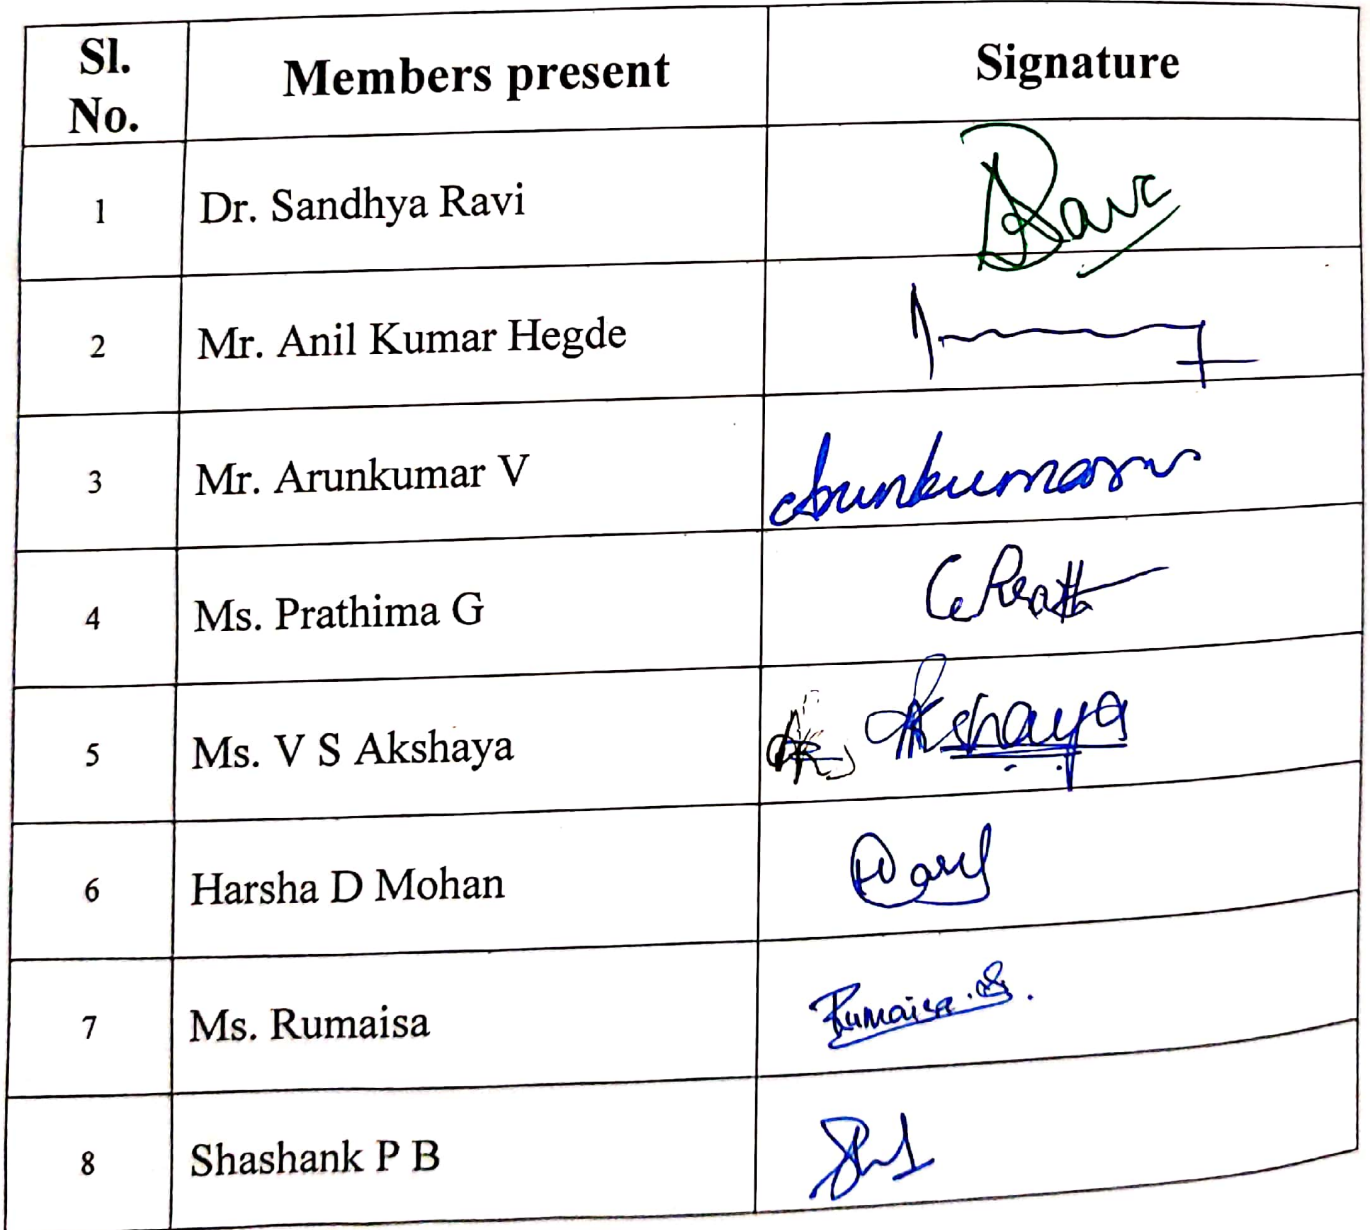 Sl. No. Members present Signature
1 Dr. Sandhya Ravi
2 Mr. Anil Kumar Hegde
3 Mr. Arunkumar V Arunkumar
4 Ms. Prathima G
5 Ms. V S Akshaya Akshaya
6 Harsha D Mohan
7 Ms. Rumaisa Rumaisa.S.
8 Shashank P B